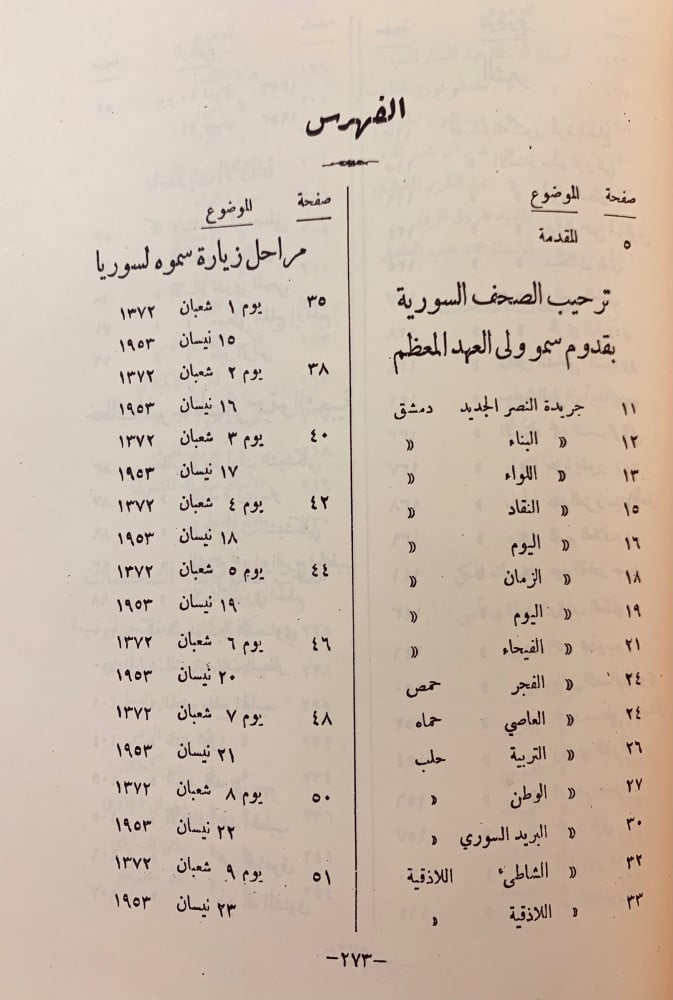 الفهرس
صفحة الموضوع
٥ المقدمة
ترحيب الصحف السورية
بقدوم سمو ولى العهد المعظم
١١ جريدة النصر الجديد دمشق
١٢ » البناء »
١٣ » اللواء »
١٥ » النقاد »
١٦ » اليوم »
١٨ » الزمان »
١٩ » اليوم »
٢١ » الفيحاء »
٢٤ » الفجر حمص
٢٤ » العاصي حماه
٢٦ » التربية حلب
٢٧ » الوطن »
٣٠ » البريد السوري »
٣٢ » الشاطىء اللاذقية
٣٣ » اللاذقية »
صفحة الموضوع
مراحل زيارة سموه لسوريا
٣٥ يوم ١ شعبان ١٣٧٢
١٥ نيسان ١٩٥٣
٣٨ يوم ٢ شعبان ١٣٧٢
١٦ نيسان ١٩٥٣
٤٠ يوم ٣ شعبان ١٣٧٢
١٧ نيسان ١٩٥٣
٤٢ يوم ٤ شعبان ١٣٧٢
١٨ نيسان ١٩٥٣
٤٤ يوم ٥ شعبان ١٣٧٢
١٩ نيسان ١٩٥٣
٤٦ يوم ٦ شعبان ١٣٧٢
٢٠ نيسان ١٩٥٣
٤٨ يوم ٧ شعبان ١٣٧٢
٢١ نيسان ١٩٥٣
٥٠ يوم ٨ شعبان ١٣٧٢
٢٢ نيسان ١٩٥٣
٥١ يوم ٩ شعبان ١٣٧٢
٢٣ نيسان ١٩٥٣
-٢٧٣-